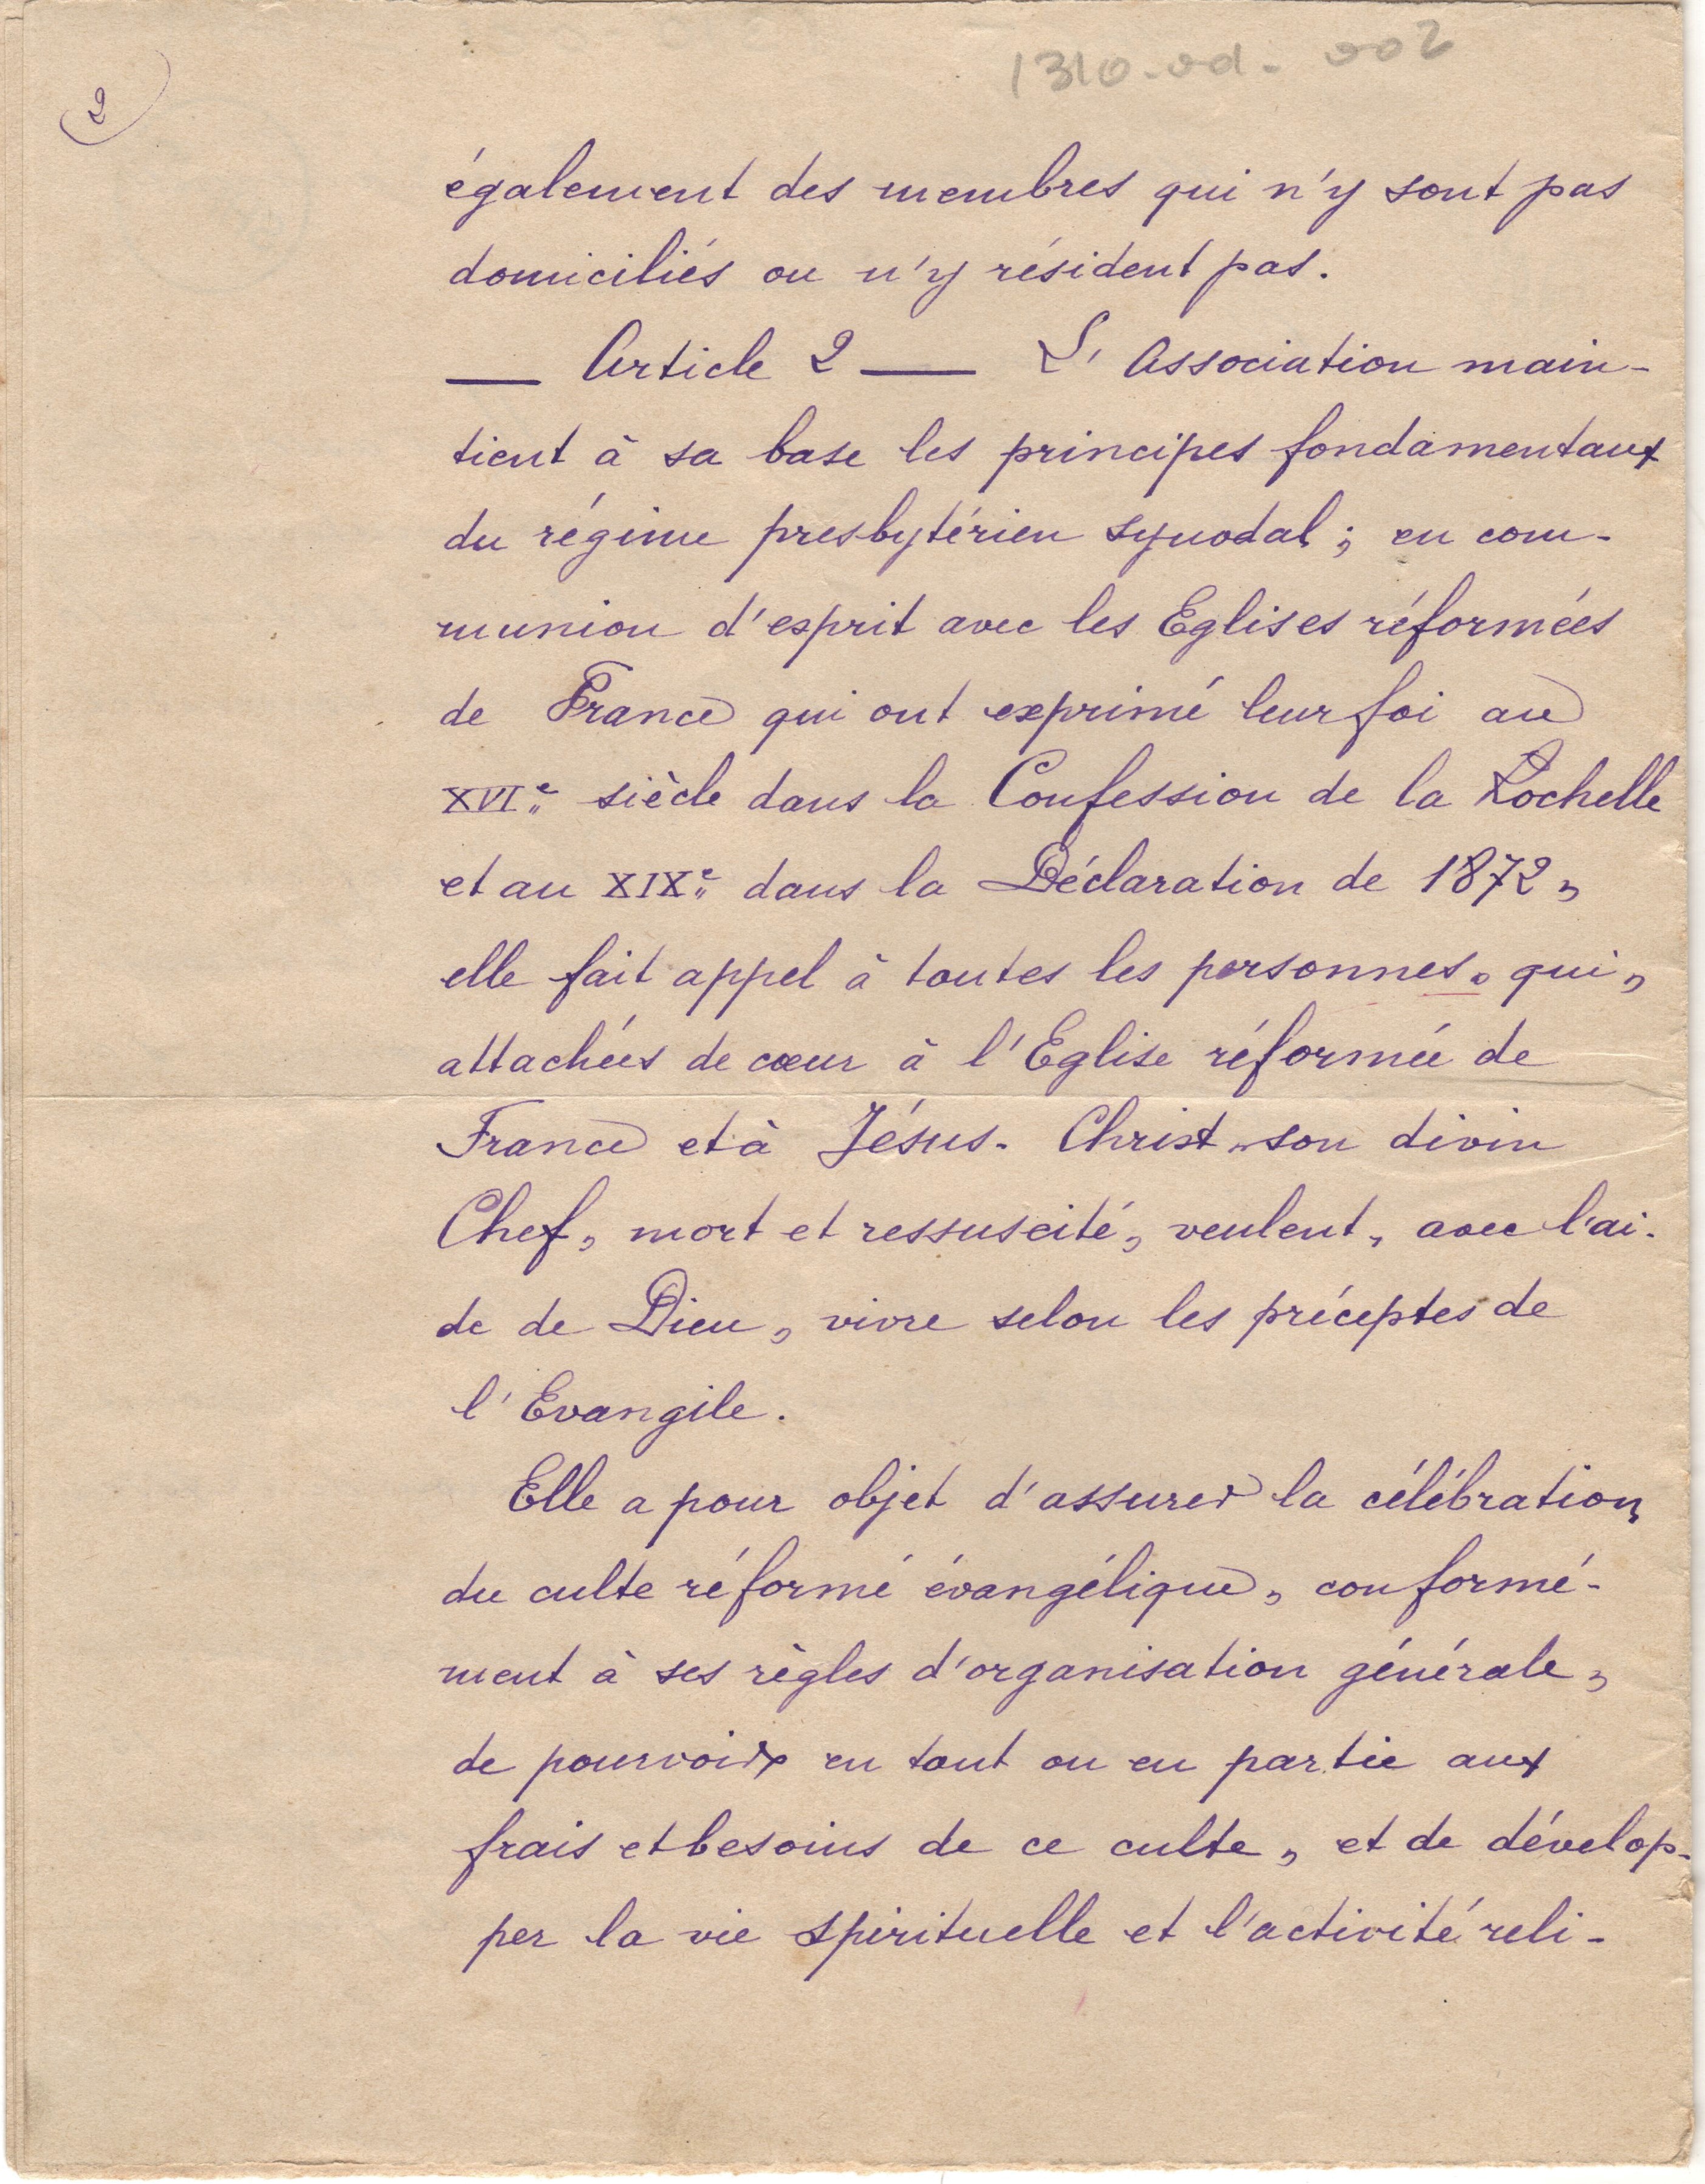 1310-od-002
2
également des membres qui n'y sont pas
domiciliés ou n'y résident pas.
— Article 2 — L'Association main-
tient à sa base les principes fondamentaux
du régime presbytérien synodal ; en com-
munion d'esprit avec les Eglises réformées
de France qui ont exprimé leur foi au
XVIe siècle dans la Confession de la Rochelle
et au XIXe dans la Déclaration de 1872,
elle fait appel à toutes les personnes, qui,
attachées de cœur à l'Eglise réformée de
France et à Jésus-Christ, son divin
Chef, mort et ressuscité, veulent, avec l'ai-
de de Dieu, vivre selon les préceptes de
l'Evangile.
Elle a pour objet d'assurer la célébration
du culte réformé évangélique, conformé-
ment à ses règles d'organisation générale,
de pourvoir en tout ou en partie aux
frais et besoins de ce culte, et de dévelop-
per la vie spirituelle et l'activité reli-